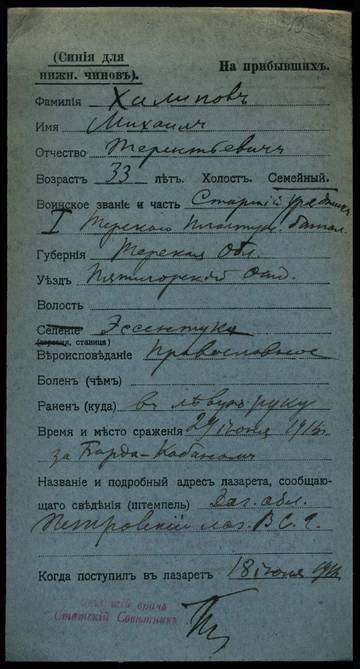 (Синія для
нижн. чиновъ).
На прибывшихъ.
Фамилія Халиповъ
Имя Михаилъ
Отчество Терентьевичъ
Возрастъ 33 лѣтъ. Холост. Семейный.
Воинское званіе и часть Старшій урядникъ
I Терскаго Пластун. батал.
Губернія Терская Обл.
Уѣздъ Пятигорскій Отд.
Волость
Селеніе Эссентуки
(деревня, станица)
Вѣроисповѣданіе Православное
Боленъ (чѣмъ)
Раненъ (куда) въ лѣвую руку
Время и мѣсто сраженія 29 1916г.
за
Названіе и подробный адресъ лазарета, сообщаю-
щаго свѣдѣнія (штемпель) Даг. обл.
Петровскій лаз. В. С. Г.
Когда поступилъ въ лазаретъ 18 іюля 1916
врача
Статскій Совѣтникъ